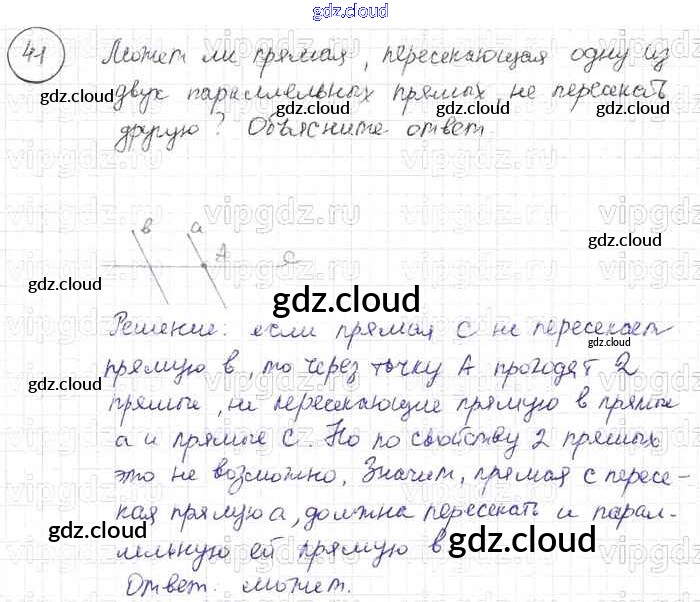 gdz.cloud
41 Может ли прямая, пересекающая одну из
двух параллельных прямых, не пересекать
другую? Объясните ответ.
gdz.cloud
gdz.cloud
gdz.cloud
vipgdz.ru vipgdz.ru vipgdz.ru
b a A C
gdz.cloud
vipgdz.ru vipgdz.ru vipgdz.ru
gdz.cloud
Решение: если прямая C не пересекает
gdz.cloud
прямую b, то через точку A проходят 2
gdz.cloud
прямые, не пересекающие прямую b прямые
a и прямые C. Но по свойству 2 прямых
gdz.cloud
это не возможно. Значит, прямая c пересе-
кая прямую a, должна пересекать и парал-
gdz.cloud
gdz.cloud
лельную ей прямую b
gdz.cloud
Ответ: может.